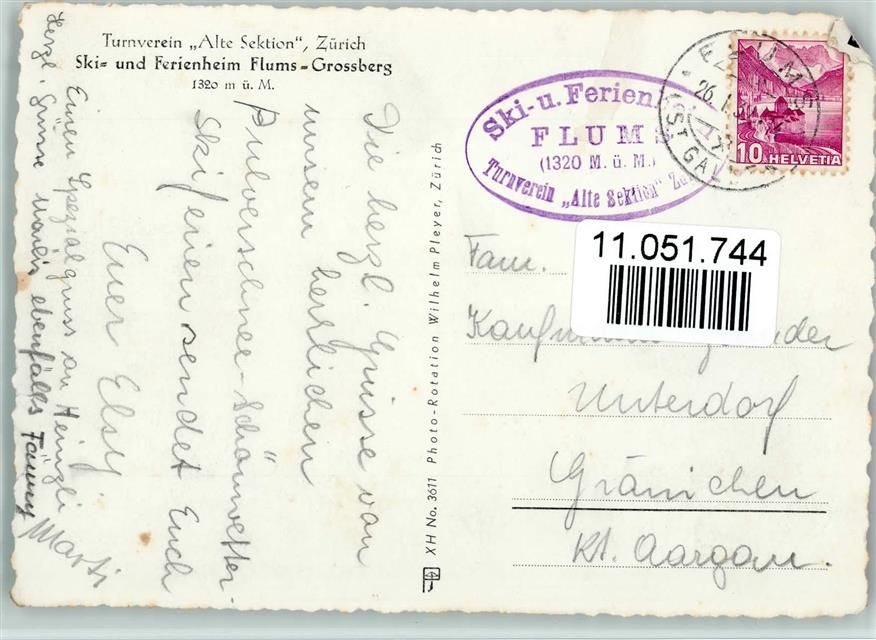 Turnverein „Alte Sektion“, Zürich
Ski- und Ferienheim Flums-Grossberg
1320 m ü. M.
Die herzl. Grüsse von
unsern herrlichen
Pulverschnee-Schönwetter-
Skiferien sendet Euch
Euer Elsy
Einen Spezialgruss an Heinzli
Herzl. Grüsse ebenfalls Fanny
Marti
XH No. 3611 Photo-Rotation Wilhelm Pleyer, Zürich
Ski- u. Ferien
FLUMS
(1320 M. ü. M.)
Turnverein „Alte Sektion“
26.
ST. GAL
10 HELVETIA
11.051.744
Fam.
Unterdorf
Gränichen
Kt. Aargau.